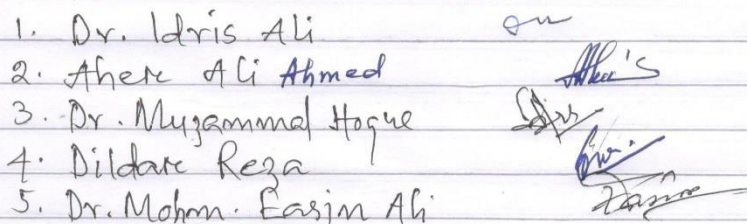 1. Dr. Idris Ali
2. Ahere Ali Ahmed
3. Dr. Muzammal Hoque
4. Dildare Reza
5. Dr. Mohm. Easin Ali